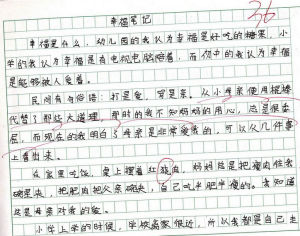 幸福笔记
36
幸福是什么，幼儿园的我认为幸福是好吃的糖果，小
学的我认为幸福是有电视电脑陪着，而初中的我认为幸福
是能够被人爱着。
民间有句俗语：打是爱，骂是亲，从小母亲使用棍棒
代替了那些大道理，那时的我不知妈妈的用心，总是很委
屈，而现在的我明白了母亲是非常爱我的，可以从几件事
上看出来。
在家里吃饭，桌上摆着红烧肉，妈妈总是把瘦肉往我
碗里夹，把肥肉把父亲碗夹，自己吃半肥半瘦的。我知道
这是母亲对我的爱。
小学上学的时候，学校离家很近，所以我都是自己走